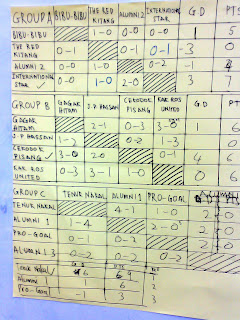 GROUP A BIBU-BIBU THE RED KITANG ALUMNI 2 INTERNATIONAL STAR G.D PTS
BIBU-BIBU 1-0 0-0 0-0 1 5
THE RED KITANG 0-1 0-1 0-1 -3 0
ALUMNI 2 0-0 1-0 0-2 -1
INTERNATIONAL STAR ✓ 0-0 1-0 2-0 3 7
GROUP B GAGAK HITAM J.P HASSAN CEKODOK PISANG KAK ROS UNITED G.D PT
GAGAK HITAM 2-1 0-3 3-0
J.P HASSAN 1-2 0-2 1-3 0
CEKODOK PISANG ✓ 3-0 2-0 0-1 4 6
KAK ROS UNITED 0-3 3-1 1-0 0 6
GROUP C TENUK NAKAL ALUMNI 1 PRO-GOAL
TENUK NAKAL 4-1 1-0
ALUMNI 1 1-4 2-0
PRO-GOAL 0-1 0-2
ALUMNI 3 0-2 0-2 0-2
Tenuk Nakal ✓ 6 9
Alumni 1 6 2
Pro-Goal -1 3 3